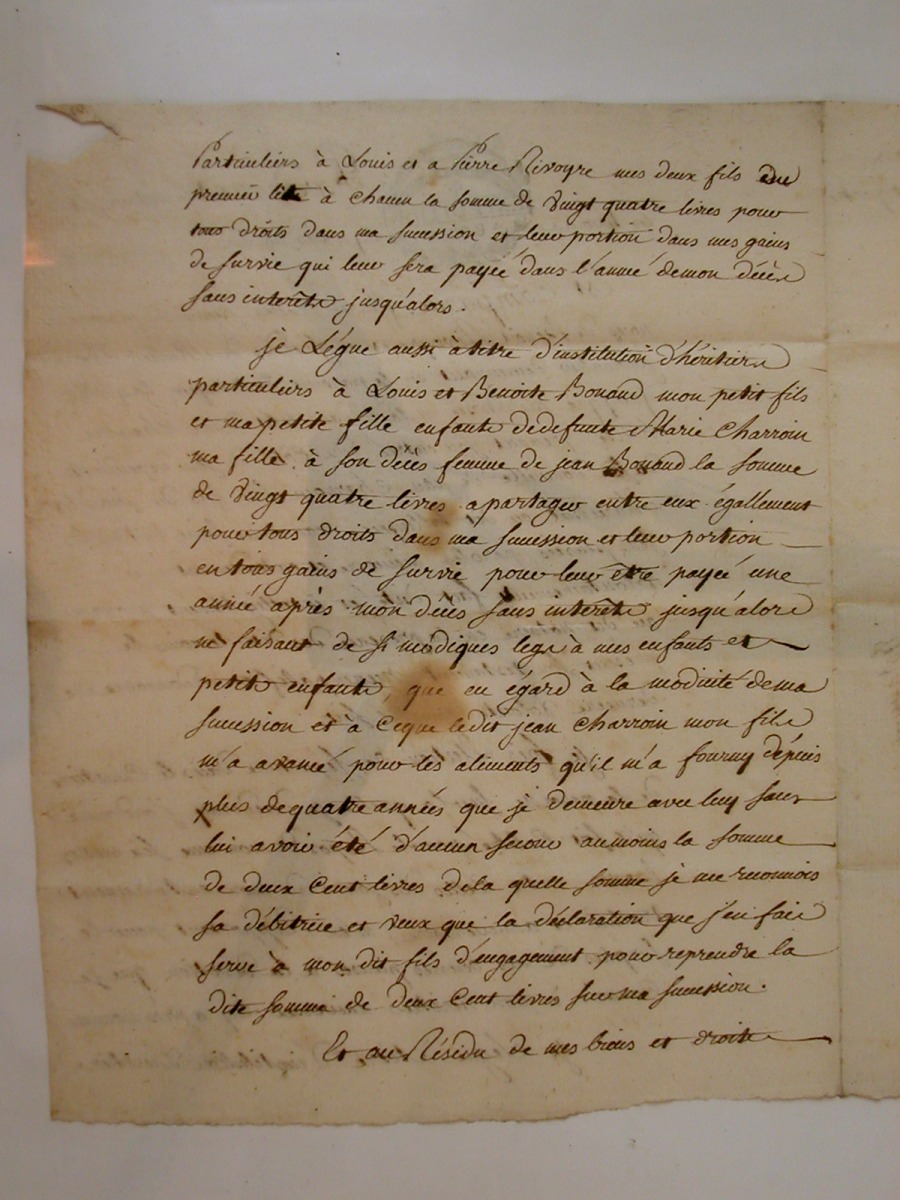 Particuliers à Louis et a Pierre Rivoyre mes deux fils du
premier lit à chacun la somme de vingt quatre livres pour
tous droits dans ma succession et leur portion dans mes gains
de survie qui leur sera payée dans l'année demon décès
sans interêts jusqu'alors.
je Légue aussi à titre d'institution d'héritiers
particuliers à Louis et Benoite Bonand mon petit fils
et ma petite fille enfants dedefunte Marie Charroin
ma fille à son décès femme de jean Bonand la somme
de vingt quatre livres apartager entre eux égallement
pour tous droits dans ma succession et leur portion
en tous gains de survie pour leur être payée une
année après mon décès sans interêts jusqu'alors
ne faisant de si modiques legs à mes enfants et
petits enfants que eu égard à la modicité dema
succession et à ceque ledit jean Charroin mon fils
m'a avancé pour les aliments qu'il m'a fourny dépuis
plus dequatre années que je demeure avec luy sans
lui avoir été d'aucun secour aumoins la somme
de deux cent livres dela quelle somme je me reconnois
sa débitrice et veux que la déclaration que j'en fais
serve à mon dit fils d'engagement pour reprendre la
dite somme de deux cent livres sur ma succession.
Et au Résidu de mes biens et droits